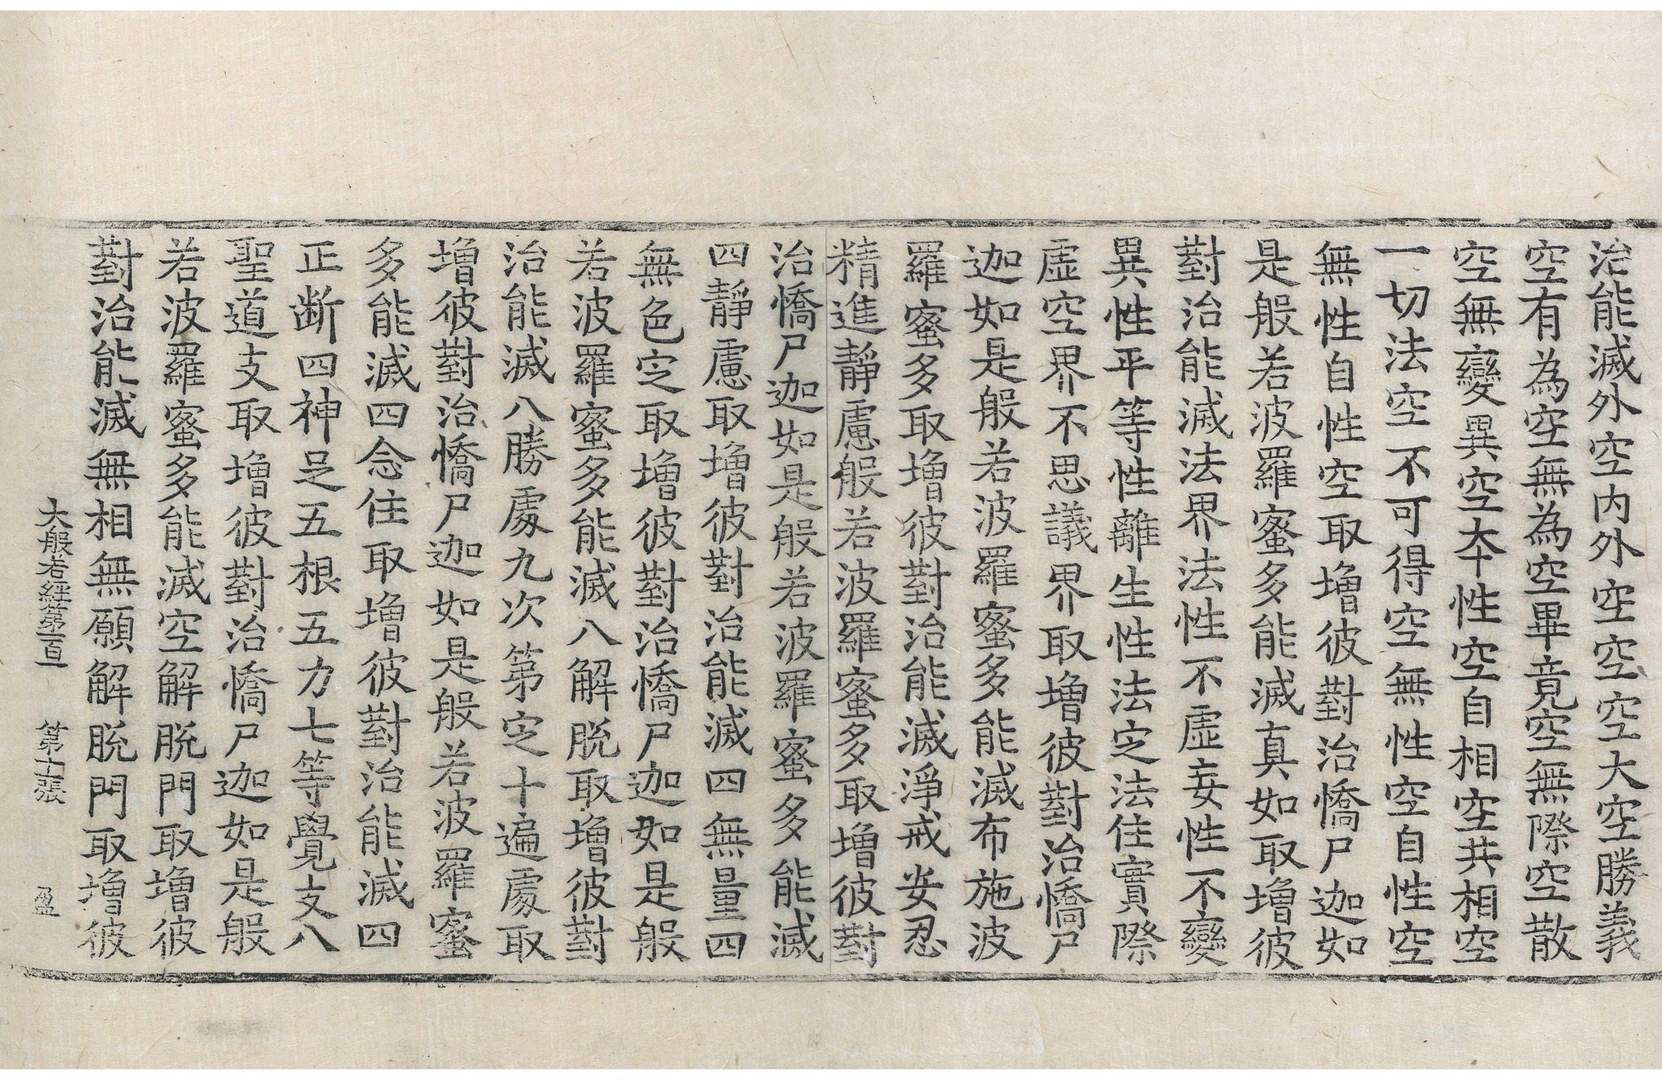 治能滅外空内外空空空大空勝義
空有為空無為空畢竟空無際空散
空無變異空本性空自相空共相空
一切法空不可得空無性空自性空
無性自性空取增彼對治憍尸迦如
是般若波羅蜜多能滅真如取增彼
對治能滅法界法性不虛妄性不變
異性平等性離生性法定法住實際
虛空界不思議界取增彼對治憍尸
迦如是般若波羅蜜多能滅布施波
羅蜜多取增彼對治能滅淨戒安忍
精進靜慮般若波羅蜜多取增彼對
治憍尸迦如是般若波羅蜜多能滅
四靜慮取增彼對治能滅四無量四
無色定取增彼對治憍尸迦如是般
若波羅蜜多能滅八解脫取增彼對
治能滅八勝處九次第定十遍處取
增彼對治憍尸迦如是般若波羅蜜
多能滅四念住取增彼對治能滅四
正斷四神足五根五力七等覺支八
聖道支取增彼對治憍尸迦如是般
若波羅蜜多能滅空解脫門取增彼
對治能滅無相無願解脫門取增彼
大般若經第一百一 第十張 盈